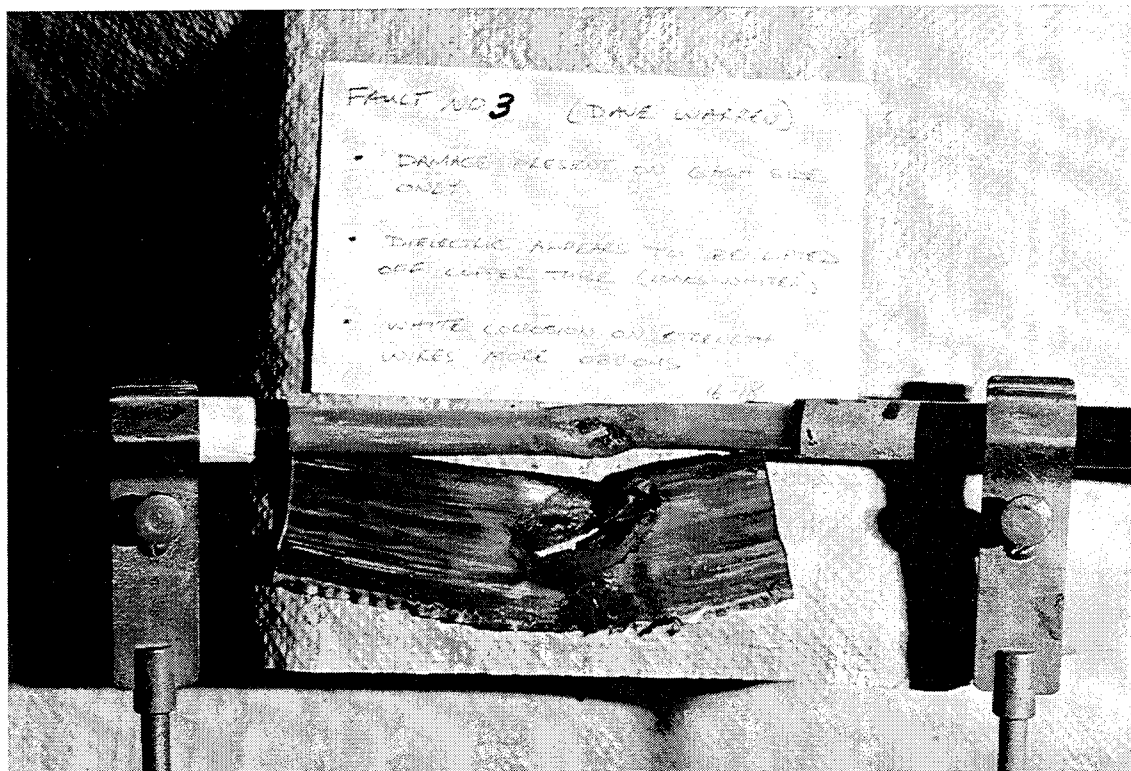 FAULT NO 3 (DAVE WARREN)
• DAMAGE PRESENT ON GASH SIDE
ONLY
• DIELECTRIC APPEARS TO BE
OFF CENTER TUBE
• WHITE CORROSION ON STRENGTH
WIRES MORE OBVIOUS
16-18